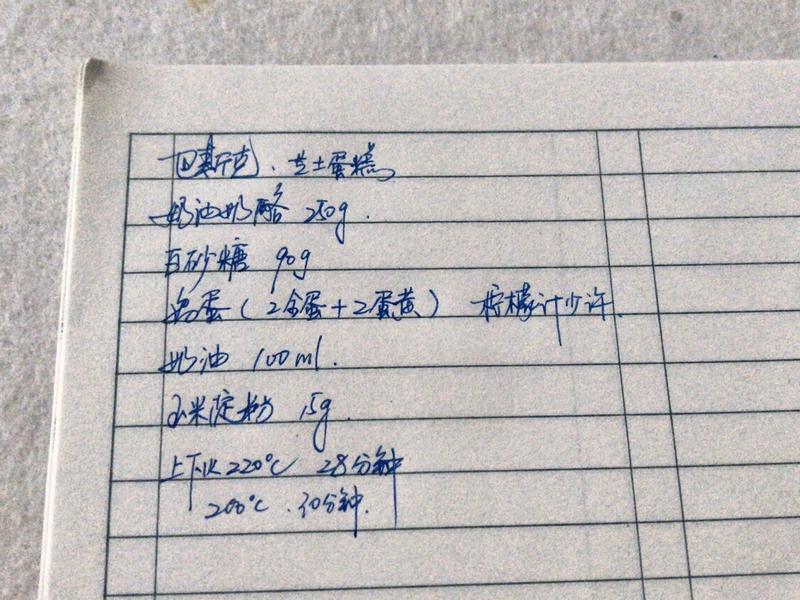 巴斯克、芝士蛋糕
奶油奶酪 250g.
白砂糖 90g
鸡蛋(2全蛋+2蛋黄) 柠檬汁少许.
奶油 100ml.
玉米淀粉 15g.
上下火220°C 28分钟
200°C. 30分钟.